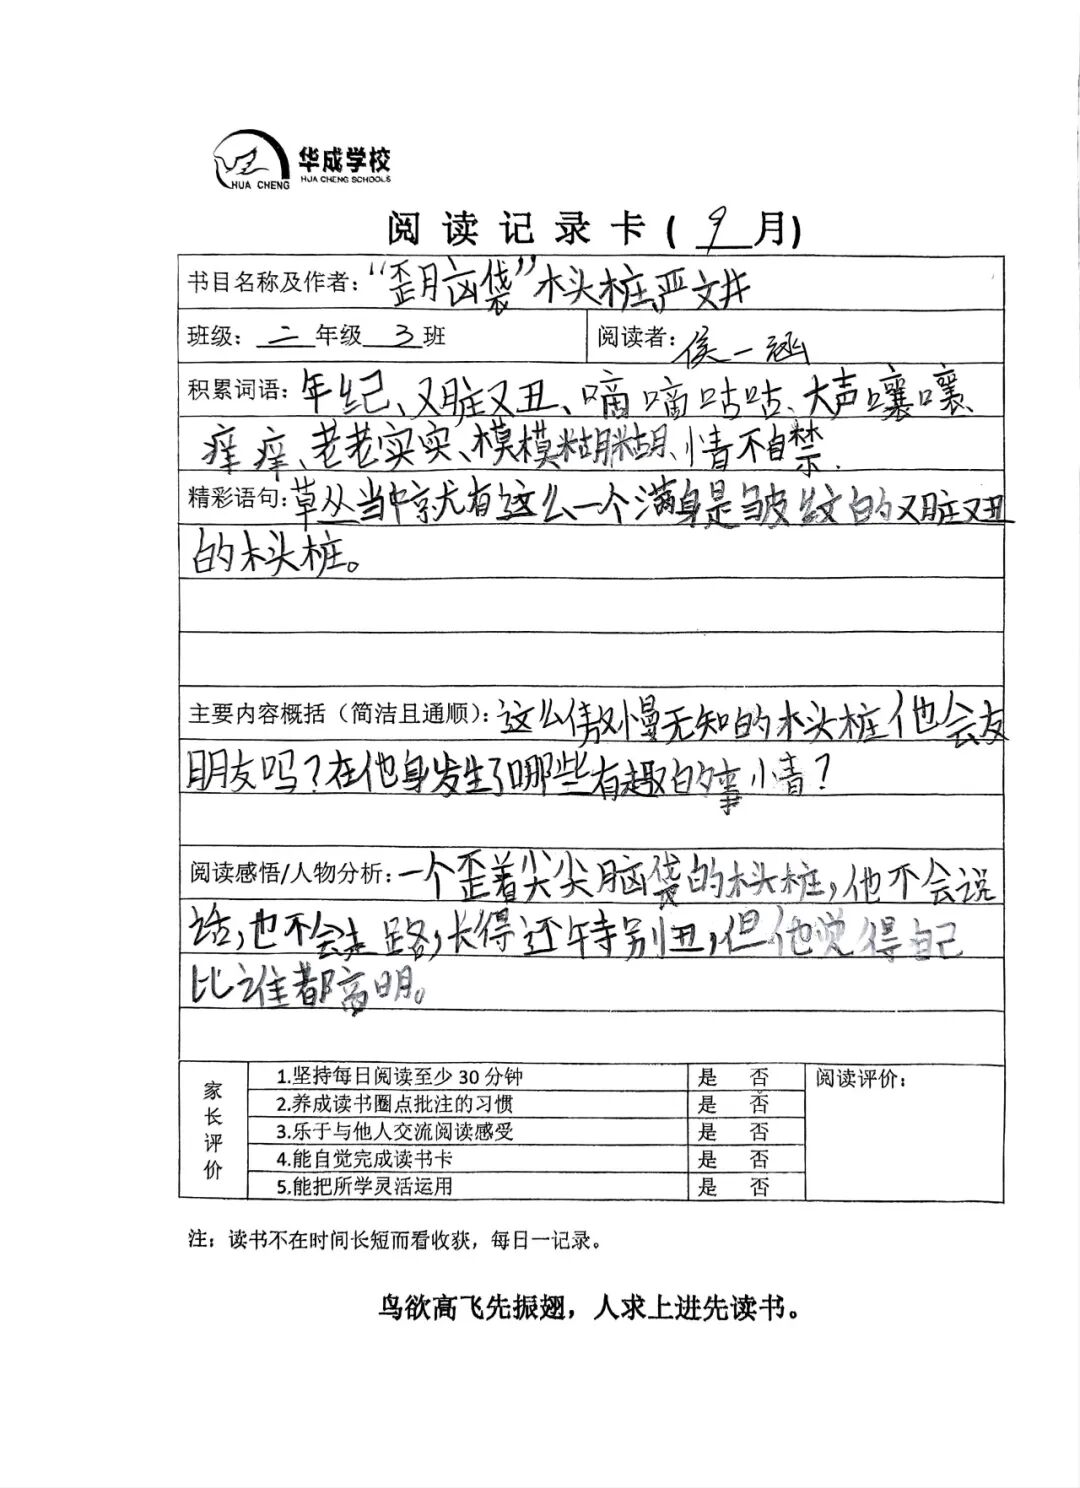 华成学校
HUA CHENG SCHOOLS
HUA CHENG
阅读记录卡(9月)
书目名称及作者："歪脑袋"木头桩,严文井
班级：二年级3班 阅读者：侯一涵
积累词语：年纪、又脏又丑、嘀嘀咕咕、大声嚷嚷、
痒痒、老老实实、模模糊糊、情不自禁.
精彩语句：草丛当中就有这么一个满身是皱纹的又脏又丑
的木头桩。
主要内容概括（简洁且通顺）：这么傲慢无知的木头桩他会友
朋友吗？在他身发生了哪些有趣的事情？
阅读感悟/人物分析：一个歪着尖尖脑袋的木头桩，他不会说
话，也不会走路，长得还特别丑，但他觉得自己
比谁都高明。
家长评价
1.坚持每日阅读至少30分钟 是 否 阅读评价：
2.养成读书圈点批注的习惯 是 否
3.乐于与他人交流阅读感受 是 否
4.能自觉完成读书卡 是 否
5.能把所学灵活运用 是 否
注：读书不在时间长短而看收获，每日一记录。
鸟欲高飞先振翅，人求上进先读书。